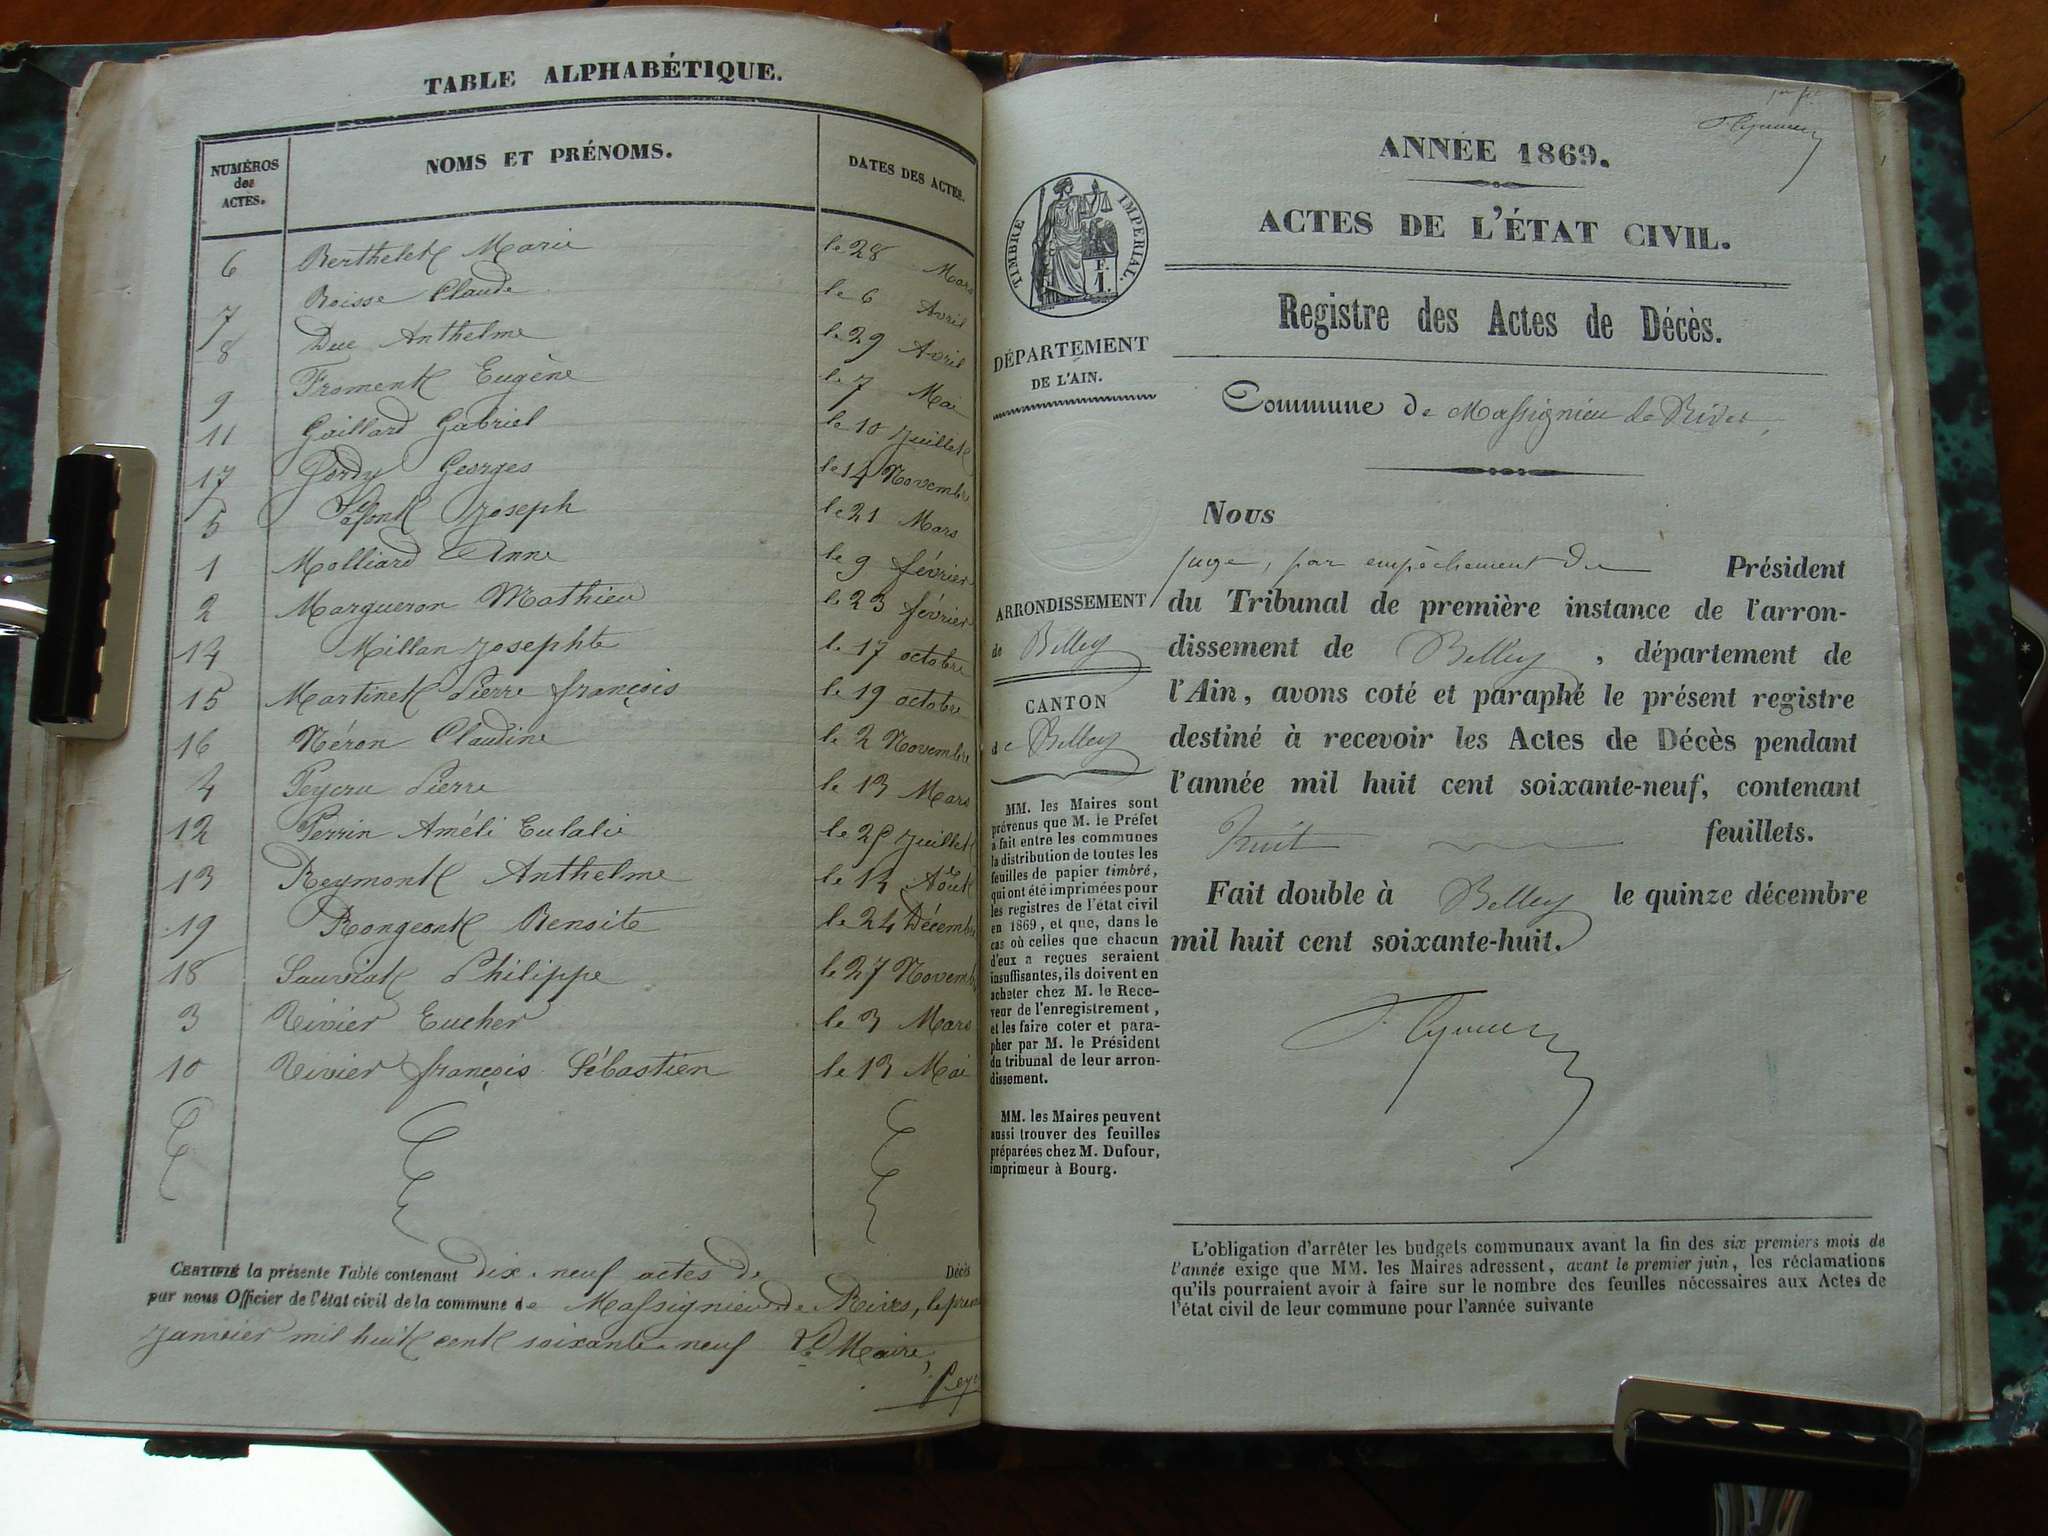 TABLE ALPHABÉTIQUE.
NUMÉROS des ACTES. NOMS ET PRÉNOMS. DATES DES ACTES.
6 Berthelet Marie le 28 Mars
7 Boisse Claude le 6 Avril
8 Duc Anthelme le 29 Avril
9 Froment Eugène le 7 Mai
11 Gaillard Gabriel le 10 juillet
17 Gordy Georges le 14 Novembre
5 Lafont Joseph le 21 Mars
1 Molliard Anne le 9 février
2 Margueron Mathieu le 23 février
14 Millan Josephte le 17 octobre
15 Martinet Pierre françois le 19 octobre
16 Néron Claudine le 2 Novembre
4 Peycru Pierre le 13 Mars
12 Perrin Améli Eulalie le 25 juillet
13 Reymont Anthelme le 13 Août
19 Rongeont Benoite le 24 Décembre
18 Sauviat Philippe le 27 Novemb
3 Vivier Eucher le 3 Mars
10 Vivier françois Sébastien le 13 Mai
CERTIFIÉ la présente Table contenant dix-neuf actes de Décès
par nous Officier de l'état civil de la commune de Massignieu de Rives, le
janvier mil huit cent soixante-neuf Le Maire,
TIMBRE IMPÉRIAL.
F.
1.
DÉPARTEMENT
DE L'AIN.
ARRONDISSEMENT
de Belley
CANTON
de Belley
MM. les Maires sont
prévenus que M. le Préfet
a fait entre les communes
la distribution de toutes les
feuilles de papier timbré,
qui ont été imprimées pour
les registres de l'état civil
en 1869, et que, dans le
cas où celles que chacun
d'eux a reçues seraient
insuffisantes, ils doivent en
acheter chez M. le Rece-
veur de l'enregistrement,
et les faire coter et para-
pher par M. le Président
du tribunal de leur arron-
dissement.
MM. les Maires peuvent
aussi trouver des feuilles
préparées chez M. Dufour,
imprimeur à Bourg.
ANNÉE 1869.
ACTES DE L'ÉTAT CIVIL.
Registre des Actes de Décès.
Commune de Massignieu de Rives,
Nous
juge, par empêchement du Président
du Tribunal de première instance de l'arron-
dissement de Belley, département de
l'Ain, avons coté et paraphé le présent registre
destiné à recevoir les Actes de Décès pendant
l'année mil huit cent soixante-neuf, contenant
huit feuillets.
Fait double à Belley le quinze décembre
mil huit cent soixante-huit.
L'obligation d'arrêter les budgets communaux avant la fin des six premiers mois de
l'année exige que MM. les Maires adressent, avant le premier juin, les réclamations
qu'ils pourraient avoir à faire sur le nombre des feuilles nécessaires aux Actes de
l'état civil de leur commune pour l'année suivante